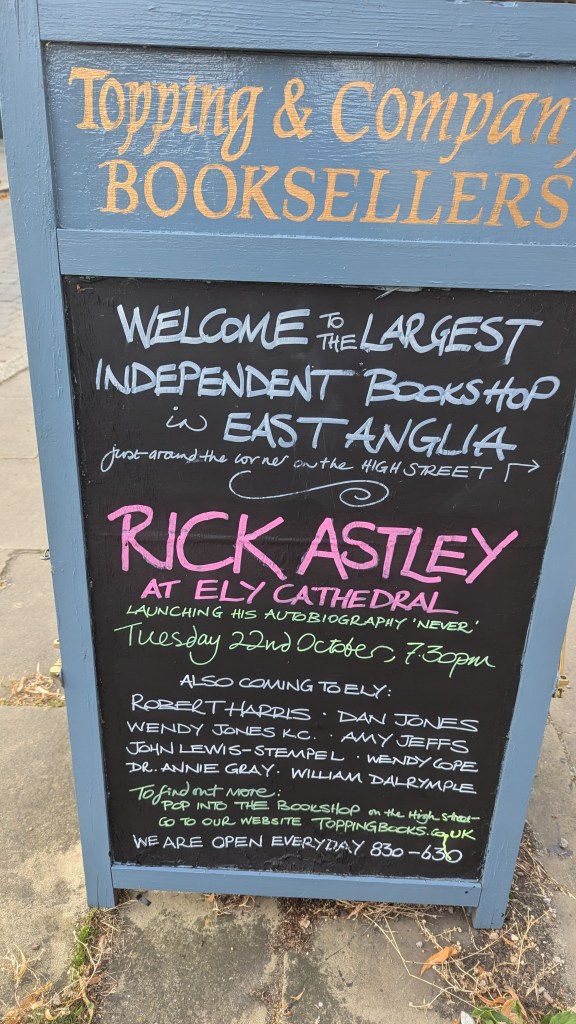 Topping & Company
BOOKSELLERS
WELCOME TO THE LARGEST
INDEPENDENT BOOKSHOP
in EAST ANGLIA
just around the corner on the HIGH STREET
RICK ASTLEY
AT ELY CATHEDRAL
LAUNCHING HIS AUTOBIOGRAPHY 'NEVER'
Tuesday 22nd October, 7.30pm
ALSO COMING TO ELY:
ROBERT HARRIS · DAN JONES
WENDY JONES K.C. · AMY JEFFS
JOHN LEWIS-STEMPEL · WENDY COPE
DR. ANNIE GRAY · WILLIAM DALRYMPLE
To find out more:
POP INTO THE BOOKSHOP on the High Street
GO TO OUR WEBSITE TOPPINGBOOKS.co.UK
WE ARE OPEN EVERYDAY 830-630